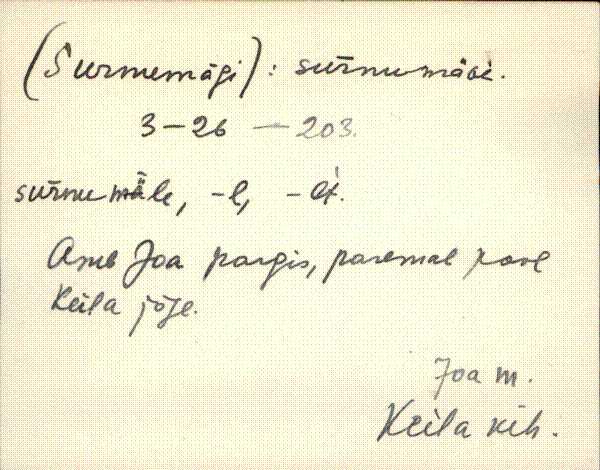 (Surmemägi): sūrnumäǵi.
3-26 — 203.
sūrnumäle, -l, -lt.
Asub Joa pargis, paremal pool
Keila jõge.
Joa m.
Keila kih.